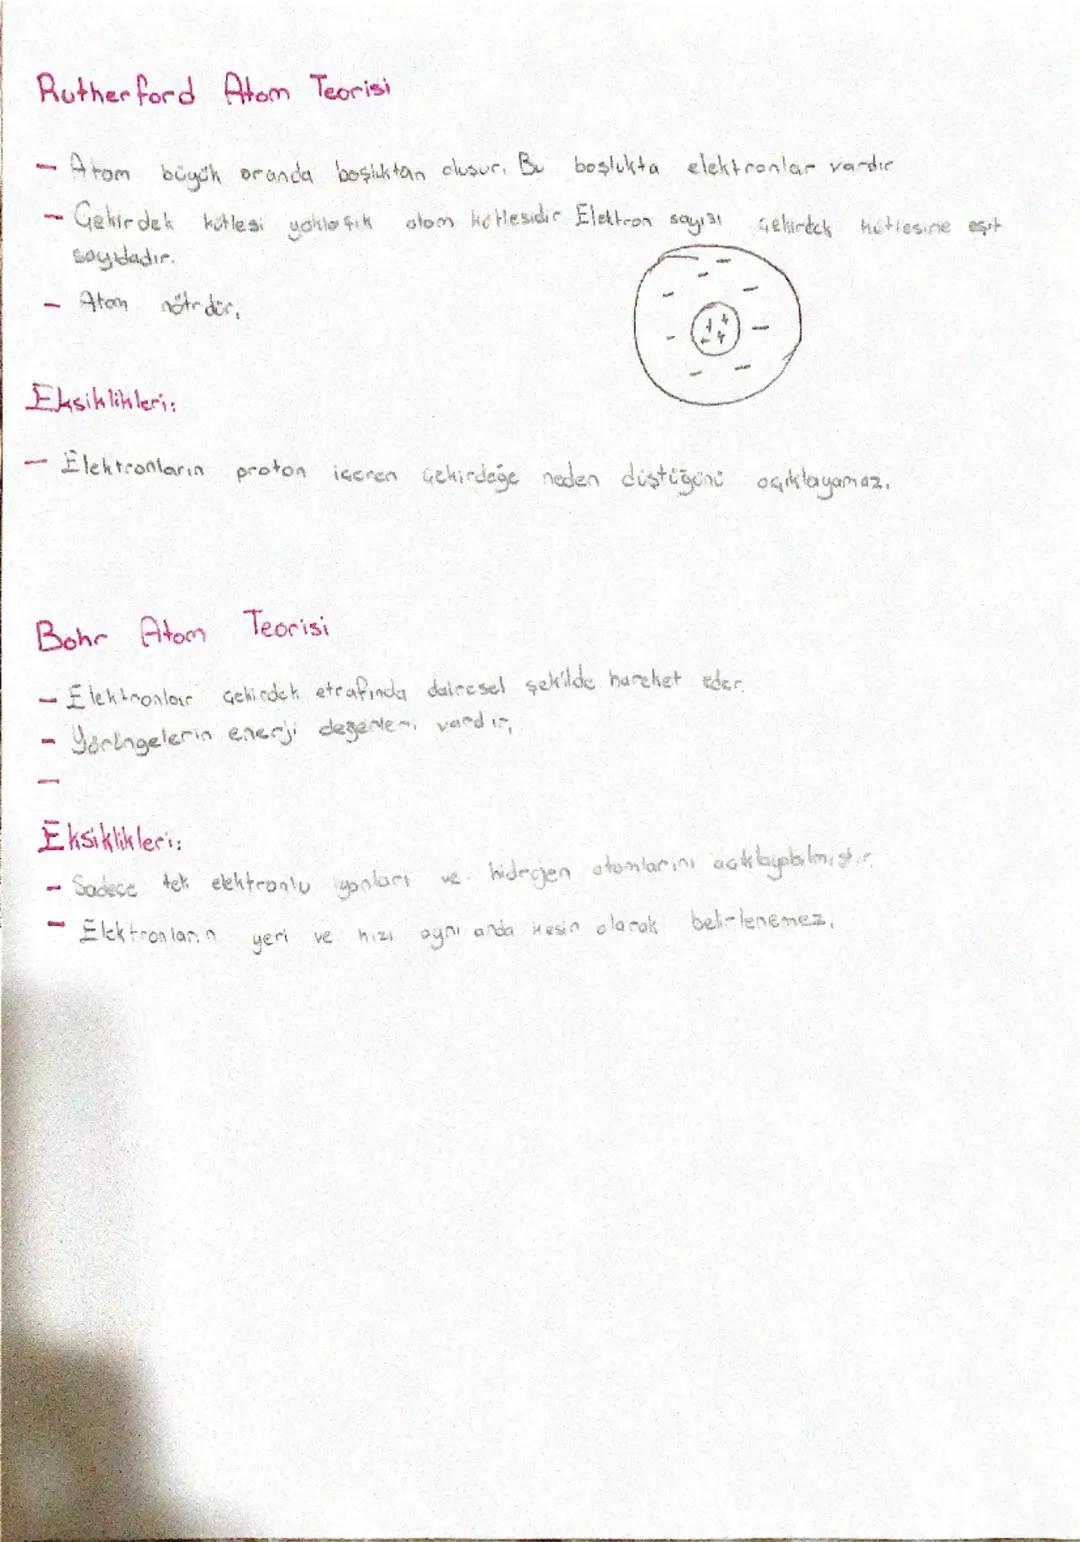 Rutherford Atom Teorisi
- Atom büyük oranda boşluktan oluşur. Bu boşlukta elektronlar vardır
- Çekirdek kütlesi yaklaşık atom kütlesidir Elektron sayısı çekirdek kütlesine eşit
sayıdadır.
- Atom nötrdür.
Eksiklikleri:
- Elektronların proton içeren çekirdeğe neden düştüğünü açıklayamaz.
Bohr Atom Teorisi
- Elektronlar çekirdek etrafında dairesel şekilde hareket eder.
- Yörüngelerin enerji değerleri vardır,
-
Eksiklikleri:
- Sadece tek elektronlu iyonları ve hidrojen atomlarını açıklayabilmiştir.
- Elektronların yeri ve hızı aynı anda kesin olarak belirlenemez.